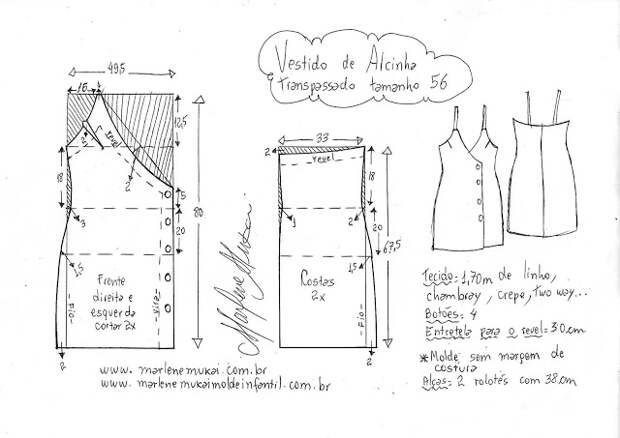 Vestido de Alcinha
transpassado tamanho 56
49,5
15
revel
12,5
2
18
5
80
3
20
1,5
Frente
direita e
esquerda
cortar 2x
fio
vira
2
33
2
revel
18
2
20
67,5
1,5
Costas
2x
fio
2
Marlene Mukai
Tecido: 1,70m de linho,
chambray, crepe, two way...
Botões: 4
Entretela para o revel= 30cm
*Molde sem margem de
costura
Alças: 2 rolotés com 38cm
www.marlenemukai.com.br
www.marlenemukaimoldeinfantil.com.br